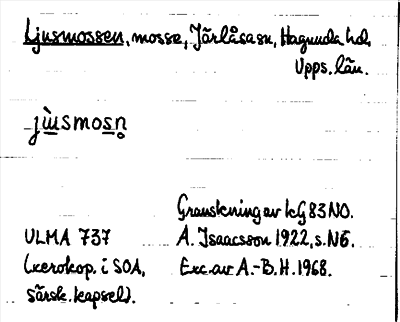 Ljusmossen, mosse, Järlåsa sn, Hagunda hd,
Upps. län.
jùusmosn̥
Granskning av kG 83 NO.
ULMA 737 A. Isaacsson 1922, s. N6.
(xerokop. i SOA, Exc. av A.-B. H. 1968.
särsk. kapsel).